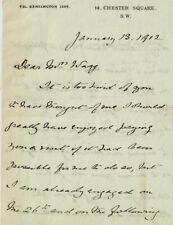 TEL. KENSINGTON 1307.
14, CHESTER SQUARE,
S.W.
January 13. 1912
Dear Mrs Wagg.
It is too kind of you
to have thought of me & I should
greatly have enjoyed paying
you a visit if it had been
possible for me to do so, but
I am already engaged on
the 26th and on the following